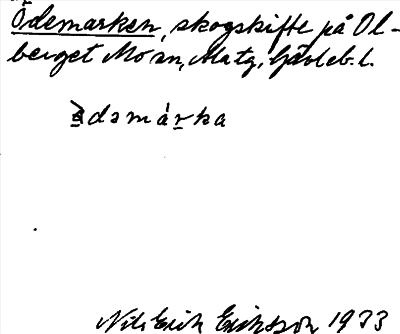 Ödemarken, skogskifte på Ol-
berget Mo sn, Matg. Gävleb. l.
ədəmárka
Nils Erik Eriksson 1933